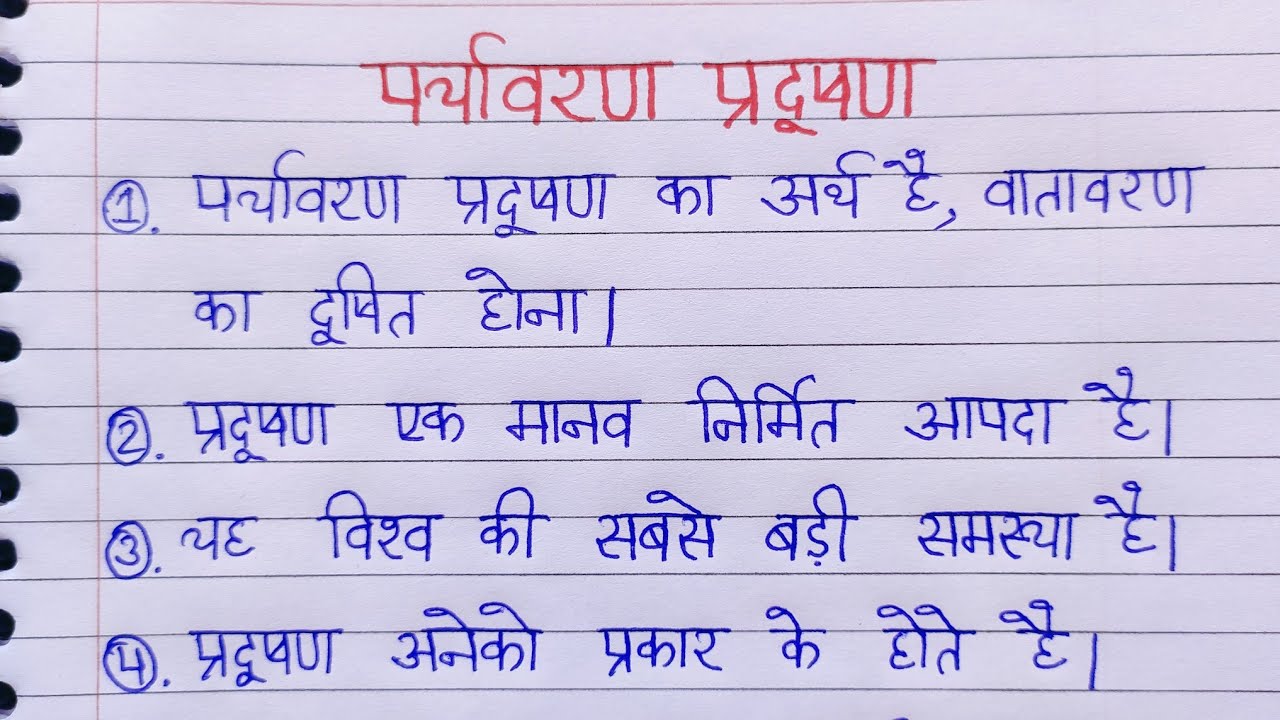 पर्यावरण प्रदूषण
1. पर्यावरण प्रदूषण का अर्थ है, वातावरण
का दूषित होना।
2. प्रदूषण एक मानव निर्मित आपदा है।
3. यह विश्व की सबसे बड़ी समस्या है।
4. प्रदूषण अनेको प्रकार के होते है।